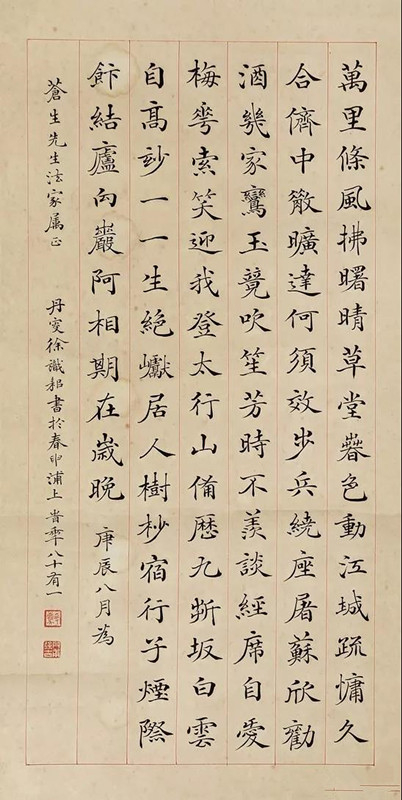 萬里條風拂曙晴草堂萅色動江城疏慵久
合儕中散曠達何須效步兵繞座屠蘇欣勸
酒幾家鸞玉競吹笙芳時不羨談經席自愛
梅花索笑迎我登太行山備歷九折坂白雲
自高玅一一生絕巘居人樹杪宿行子煙際
飰結廬向巖阿相期在歲晚 庚辰八月為
蒼生先生法家属正 丹叟徐識耜書於春申浦上旹秊八十有一